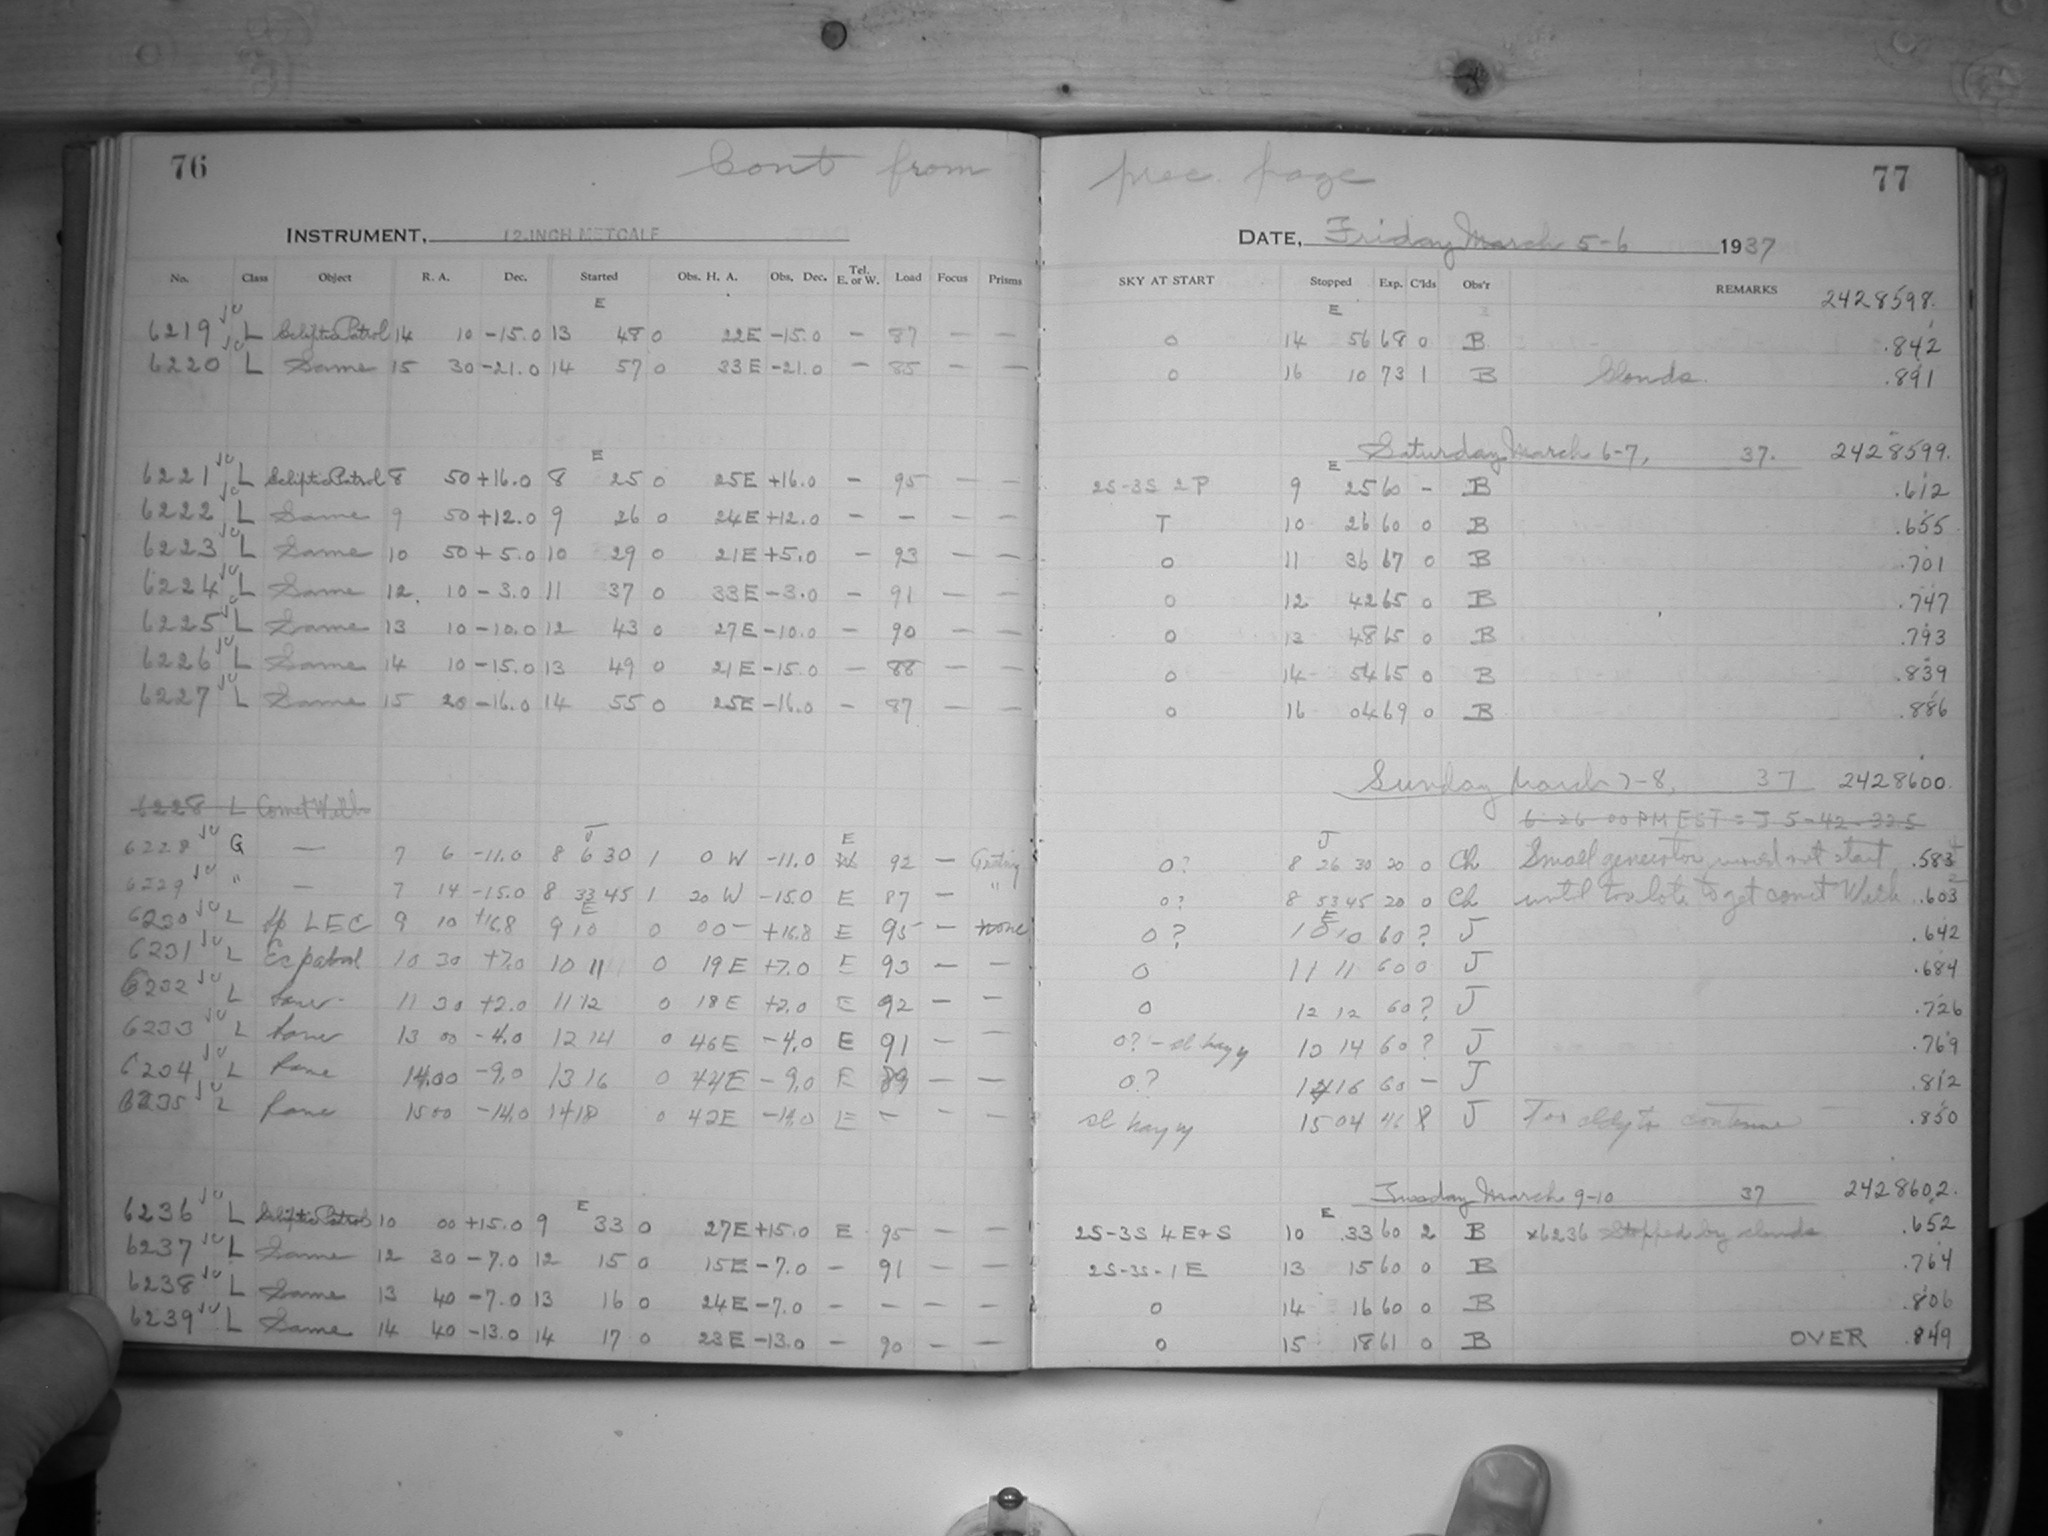 76
Cont from prec. page
77
INSTRUMENT, 12-INCH METCALF
DATE, Friday March 5-6 1937
No. Class Object R. A. Dec. Started Obs. H. A. Obs. Dec. Tel. E. or W. Load Focus Prisms SKY AT START Stopped Exp. C'lds Obs'r REMARKS 2428598.
E E
6219 L Ecliptic Patrol 14 10 -15.0 13 48 0 22E -15.0 - 87 - - 0 14 56 68 0 B .842
6220 L Same 15 30 -21.0 14 57 0 33E -21.0 - 85 - - 0 16 10 73 1 B Clouds. .891
Saturday March 6-7, 37. 2428599.
E E
6221 L Ecliptic Patrol 8 50 +16.0 8 25 0 25E +16.0 - 95 - - 2S-3S 2P 9 25 60 - B .612
6222 L Same 9 50 +12.0 9 26 0 24E +12.0 - - - - T 10 26 60 0 B .655
6223 L Same 10 50 +5.0 10 29 0 21E +5.0 - 93 - - 0 11 36 67 0 B .701
6224 L Same 12. 10 -3.0 11 37 0 33E -3.0 - 91 - - 0 12 42 65 0 B .747
6225 L Same 13 10 -10.0 12 43 0 27E -10.0 - 90 - - 0 13 48 65 0 B .793
6226 L Same 14 10 -15.0 13 49 0 21E -15.0 - 88 - - 0 14 54 65 0 B .839
6227 L Same 15 20 -16.0 14 55 0 25E -16.0 - 87 - - 0 16 04 69 0 B .886
Sunday March 7-8, 37 2428600.
6228 L Comet Wilk
6 26 00 PM EST = J 5-42-32.5
J E J
6228 G - 7 6 -11.0 8 6 30 1 0 W -11.0 W 92 - Grating 0? 8 26 30 20 0 Ch Small generator would not start .583
6229 " - 7 14 -15.0 8 33 45 1 20 W -15.0 E 87 - " 0? 8 53 45 20 0 Ch until too late to get comet Wilk .603
E E
6230 L Sp LEC 9 10 +16.8 9 10 0 00 - +16.8 E 95 - none 0? 10 10 60 ? J .642
6231 L Ec patrol 10 30 +7.0 10 11 0 19 E +7.0 E 93 - - 0 11 11 60 0 J .684
6232 L Same 11 30 +2.0 11 12 0 18 E +2.0 E 92 - - 0 12 12 60 ? J .726
6233 L Same 13 00 -4.0 12 14 0 46E -4.0 E 91 - - 0? - sl hazy 13 14 60 ? J .769
6234 L Same 14.00 -9.0 13 16 0 44E -9.0 E 89 - - 0.? 14 16 60 - J .812
6235 L Same 15 00 -14.0 14 18 0 42E -14.0 E - - - sl hazy 15 04 46 J Too cldy to continue .850
Tuesday March 9-10 37 2428602.
E E
6236 L Ecliptic Patrol 10 00 +15.0 9 33 0 27E +15.0 E 95 - - 2S-3S 4 E+S 10 33 60 2 B x6236 Stopped by clouds .652
6237 L Same 12 30 -7.0 12 15 0 15E -7.0 - 91 - - 2S-3S-1E 13 15 60 0 B .764
6238 L Same 13 40 -7.0 13 16 0 24E -7.0 - - - - 0 14 16 60 0 B .806
6239 L Same 14 40 -13.0 14 17 0 23E -13.0 - 90 - - 0 15 18 61 0 B OVER .849